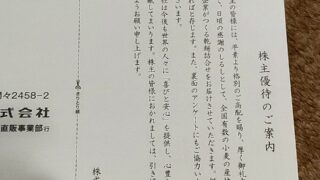 株主優待のご案内
主の皆様には、平素より格別のご高配を賜り、厚く御礼
、日頃の感謝のしるしとして、全国有数の小麦の産地
企業がつくる乾麺詰合せをお届けさせていただきます。
ば幸いに存じます。また、裏面のアンケートにもご協力い
ざいます。
社は今後も世界の人々に「喜びと安心」を提供し、心豊
献してまいります。株主の皆様におかれましては、引き
ようお願い申し上げます。
株式
きりとり線
々2458-2
式会社
直販事業部行